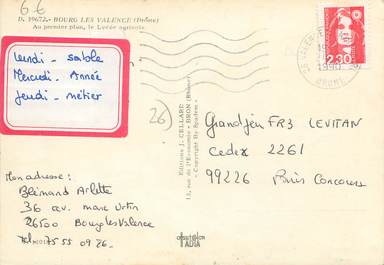 6€
D. 19672. - BOURG LES VALENCE (Drôme)
Au premier plan, le Lycée agricole
Lundi - sable
Mercredi - Année
Jeudi - métier
26
Editions J. CELLARD
BRON (Rhône)
Copyright By
Grand Jeu FR3 LEVITAN
Cedex 2261
99226 Paris Concours
2,30
1990
DROME
Mon adresse :
Blémand Arlette
36 av. marc Urtin
26500 Bourg les Valence
Tel. 75 55 09 26.